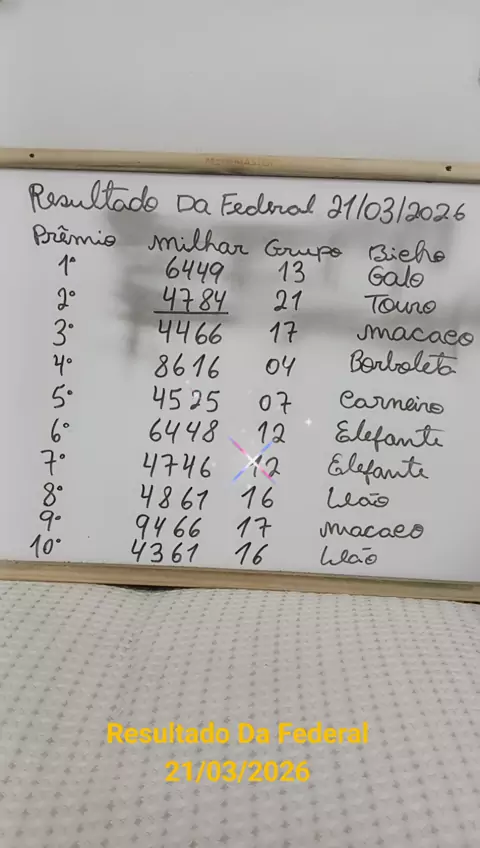 Resultado Da Federal 21/03/2026
Prêmio milhar Grupo Bicho
1° 6449 13 Galo
2° 4784 21 Touro
3° 4466 17 macaco
4° 8616 04 Borboleta
5° 4525 07 Carneiro
6° 6448 12 Elefante
7° 4746 12 Elefante
8° 4861 16 Leão
9° 9466 17 macaco
10° 4361 16 Leão
Resultado Da Federal
21/03/2026